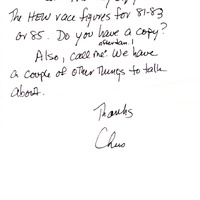 The HEW race figures for 81-83
or 85. Do you have a copy?
Also, call me. We have
a couple of other things to talk
about.
Thanks
Chris